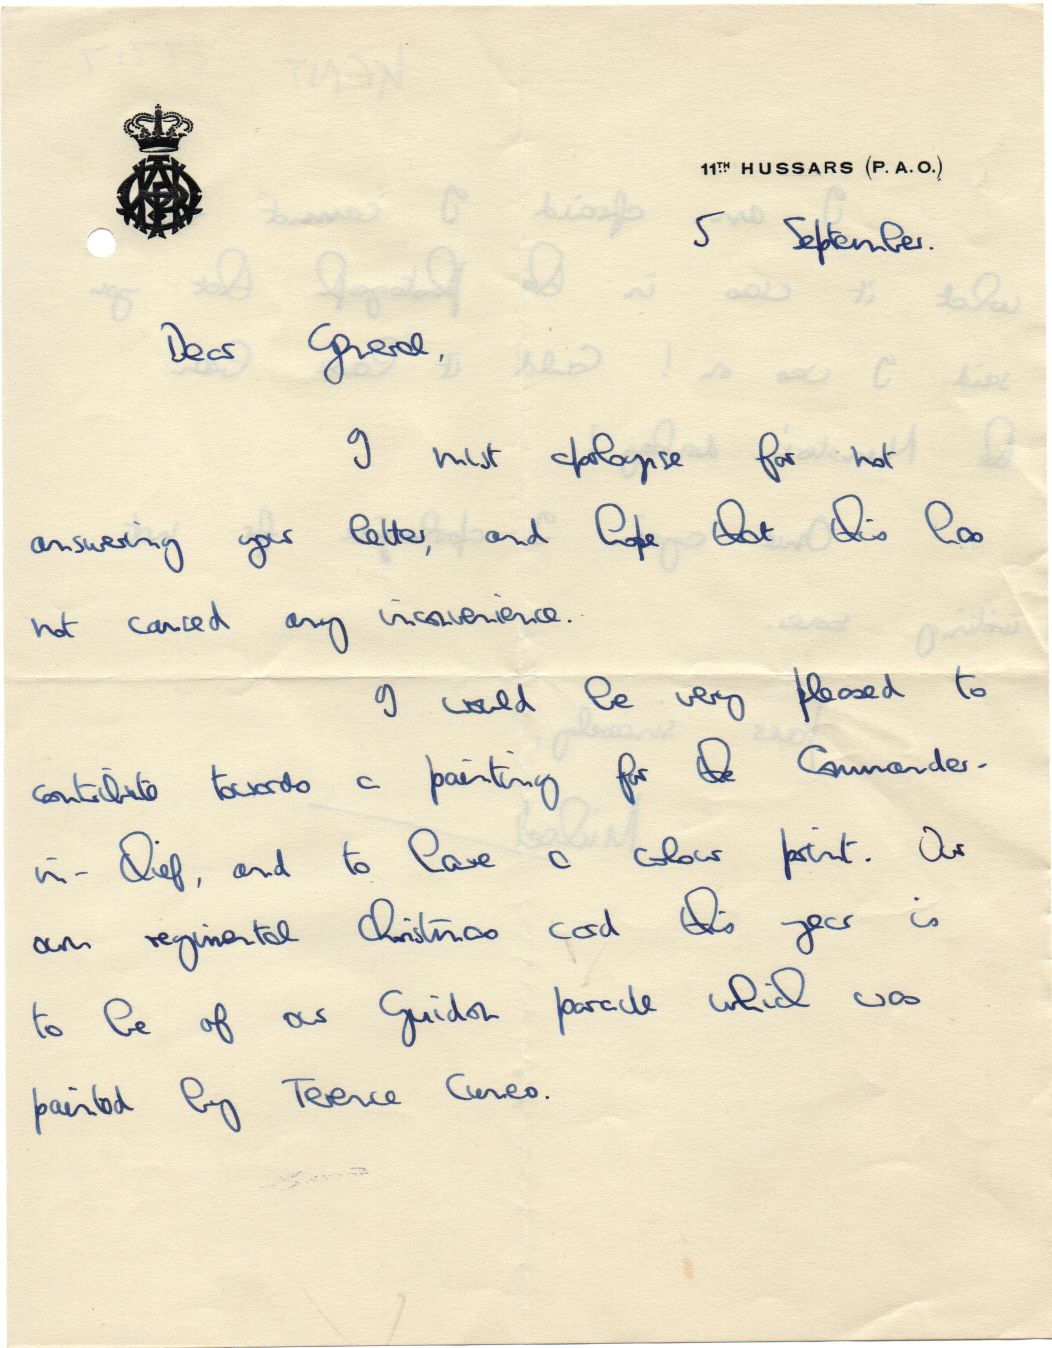 11TH HUSSARS (P. A. O.)
5 September.
Dear General,
I must apologise for not
answering your letter, and hope that this has
not caused any inconvenience.
I would be very pleased to
contribute towards a painting for the Commander-
in-Chief, and to have a colour print. Our
own regimental Christmas card this year is
to be of our Guidon parade which was
painted by Terence Cuneo.